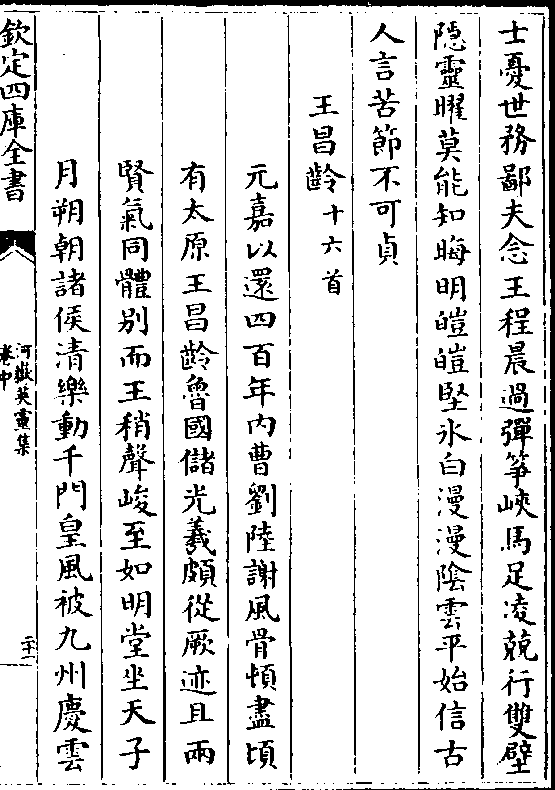 士憂世務鄙夫念王程晨過彈箏峽馬足凌兢行雙壁
隠靈曜莫能知晦明皚皚堅氷白漫漫陰雲平始信古
人言苦節不可貞
王昌齡十六首
元嘉以還四百年内曹劉陸謝風骨頓盡頃
有太原王昌齡魯國儲光羲頗從厥迹且兩
賢氣同體别而王稍聲峻至如明堂坐天子
月朔朝諸侯清樂動千門皇風被九州慶雲
欽定四庫全書
河嶽英靈集
卷中
二十一